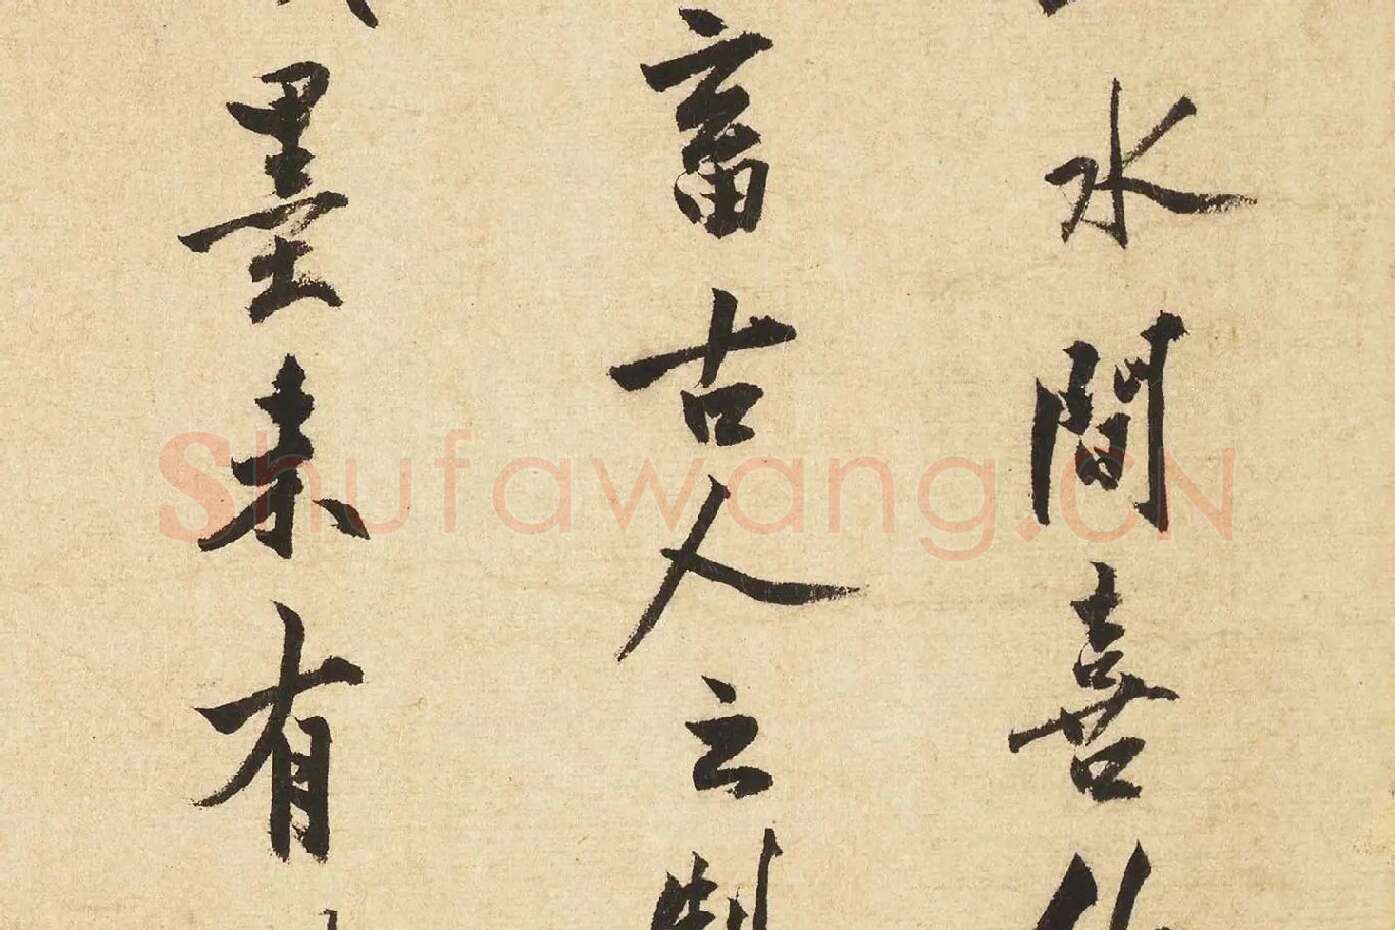 水間喜
畜古人之制
墨未有
Shufawang.CN